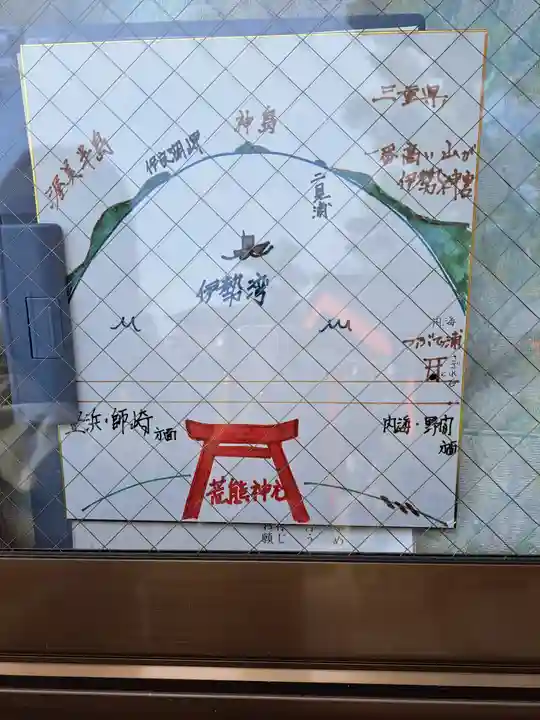 三重県
神島
伊良湖岬
渥美半島
一番高い山が
伊勢神宮
二見浦
伊勢湾
内海
つぶて浦
豊浜・師崎
方面
内海・野間
方面
荒熊神社